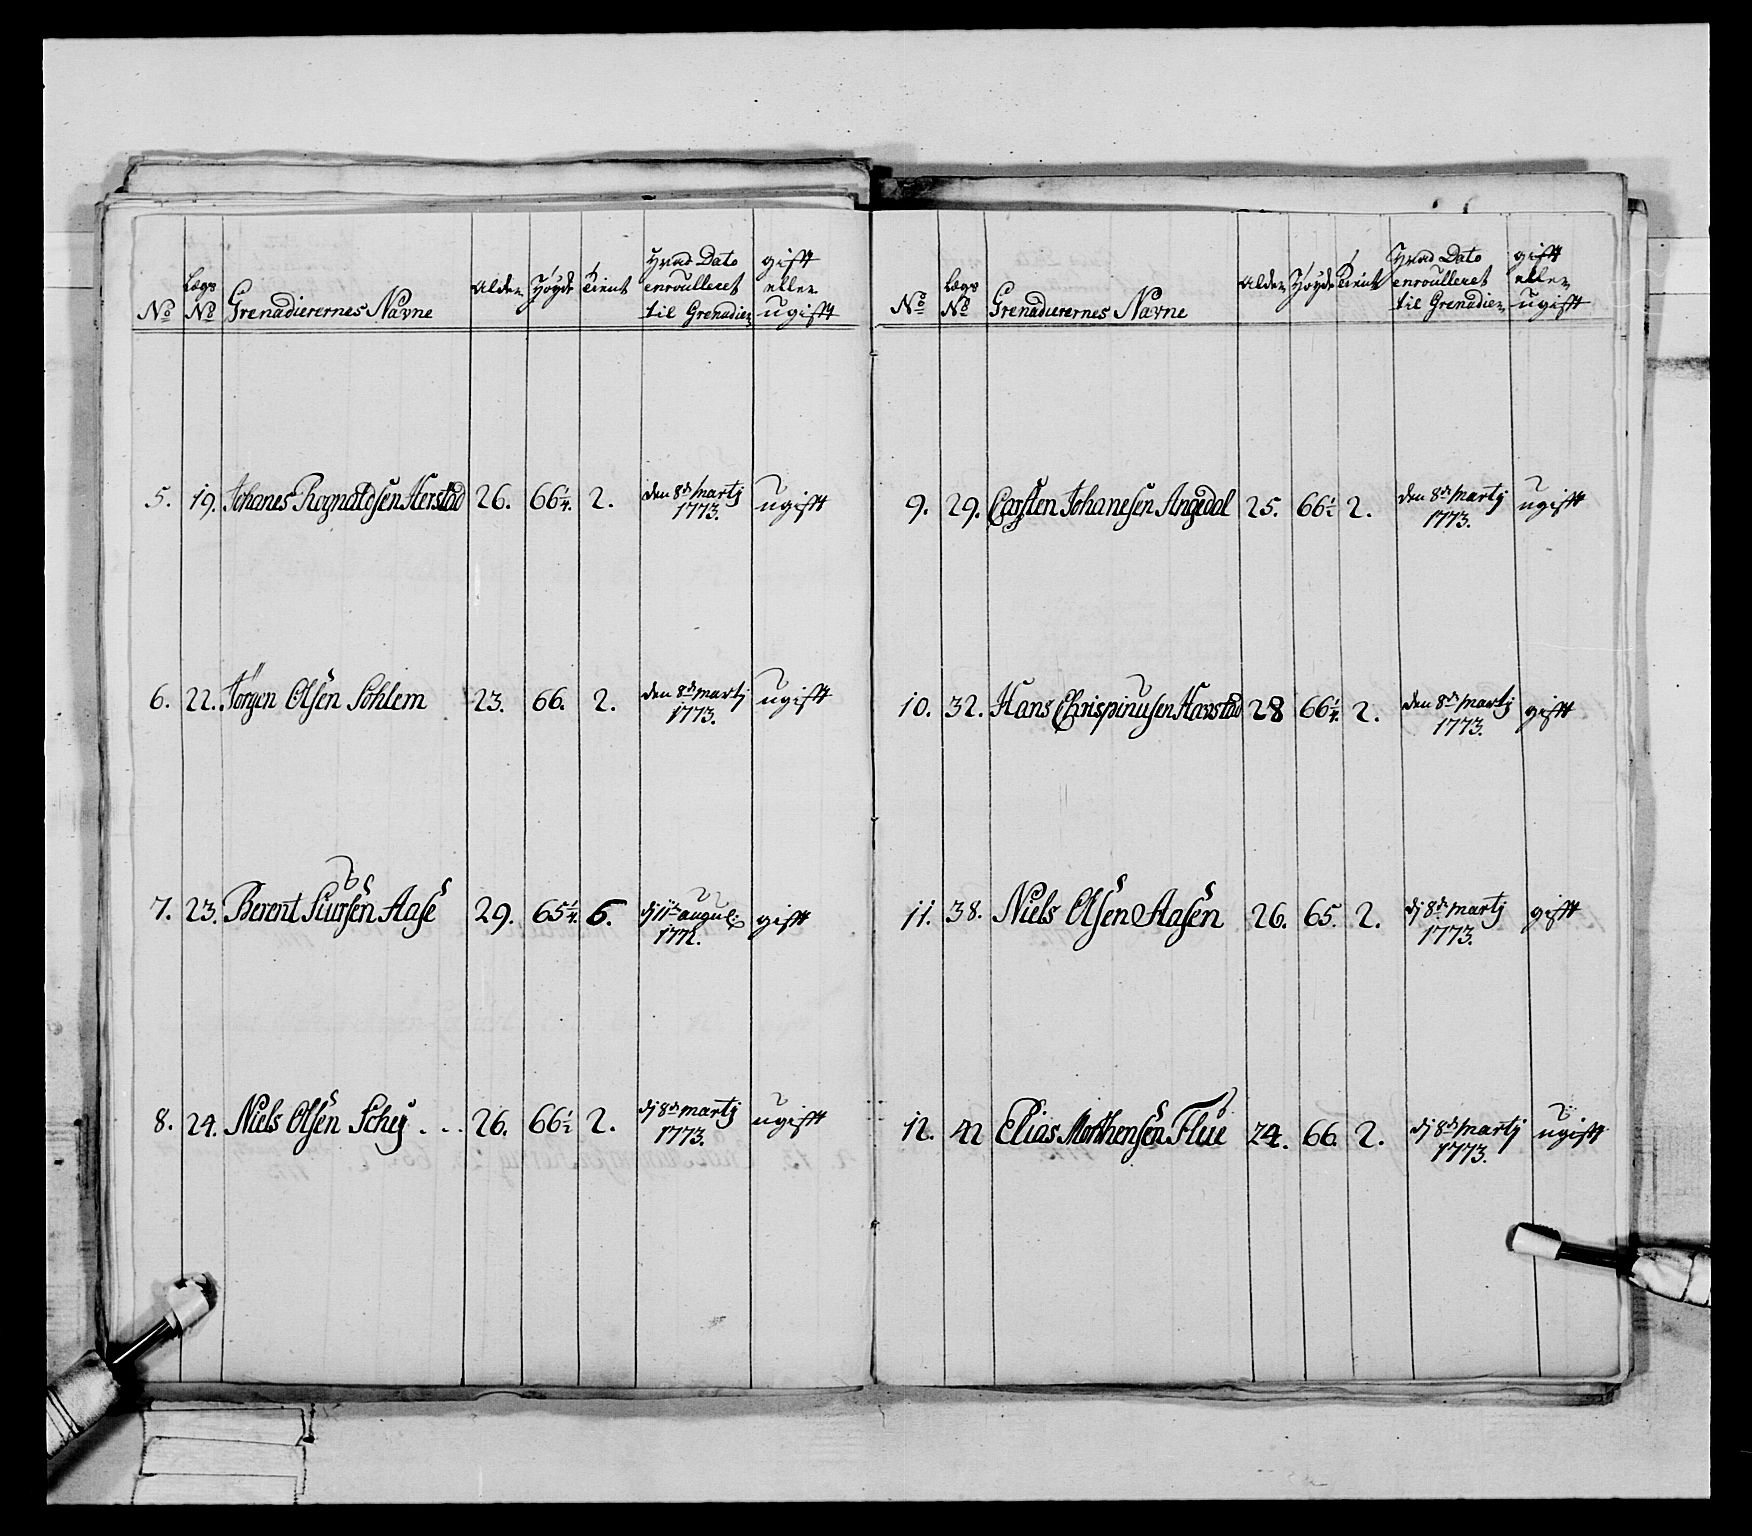 No Lægs No Grenadierernes Navne Alder Høyde Tient Hvad Dato enroulleret til Grenadier gift eller ugift
5. 19. Johanes Ragnaldsen Herstad 26. 66 1/4. 2. den 8de Martj 1773. ugift
6. 22. Jørgen Olsen Sohlem 23. 66. 2. den 8de Martj 1773. ugift
7. 23. Berent Siursen Aase 29. 65 1/4. 6. dj 11te augusti 1772. gift
8. 24. Niels Olsen Schey . . . 26. 66 1/2 2. dj 8de martj 1773. ugift
No Lægs No Grenadierernes Navne Alder Høyde Tient Hvad Dato enroulleret til Grenadier gift eller ugift
9. 29. Carsten Johanesen Angedal 25. 66 1/2 2. den 8de Martj 1773. ugift
10. 32. Hans Chrispinusen Havstad 28 66 1/4. 2. den 8de Martj 1773. gift
11. 38. Niels Olsen Aasen 26. 65. 2. dj 8de martj 1773. gift
12. 42 Elias Morthensen Flue 24. 66. 2. dj 8de martj 1773. ugift